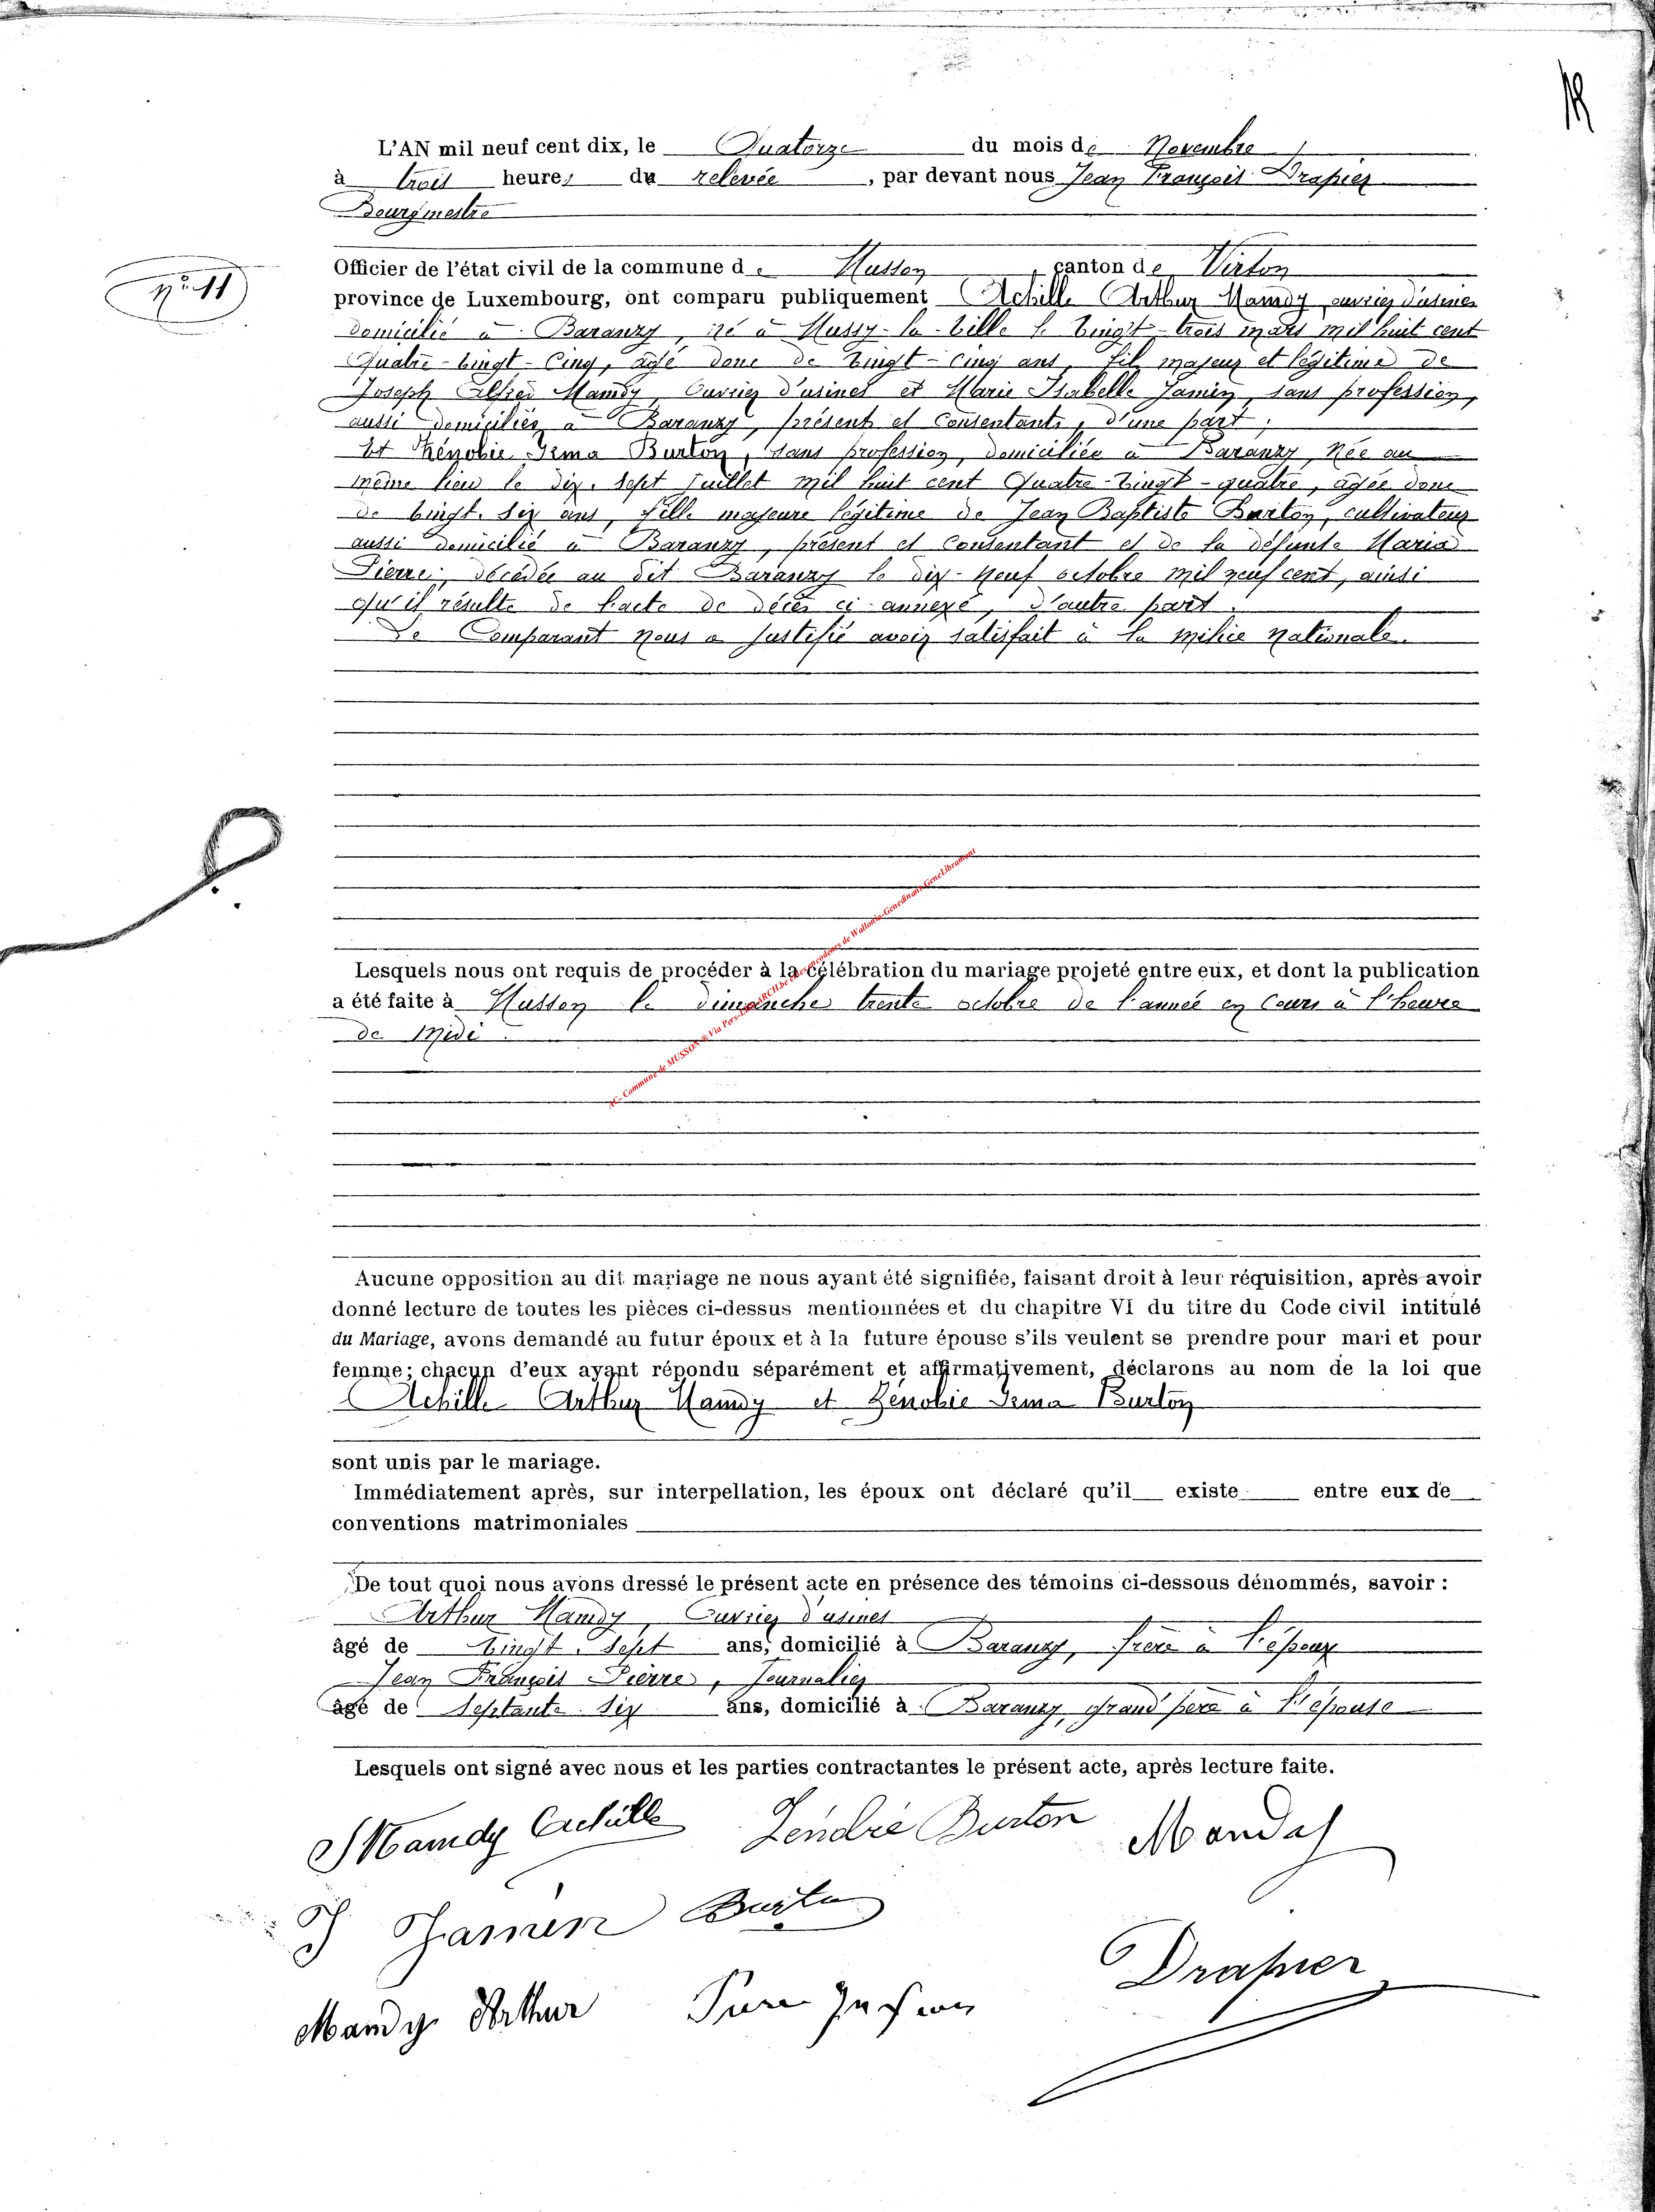 L'AN mil neuf cent dix, le Quatorze du mois de Novembre
à trois heures du relevée, par devant nous Jean François Drapier
Bourgmestre
Officier de l'état civil de la commune de Musson, canton de Virton
n° 11
province de Luxembourg, ont comparu publiquement Achille Arthur Mandy ouvrier d'usines
domicilié à Baranzy, né à Mussy-la-Ville le vingt-trois mars mil huit cent
Quatre-vingt-Cinq, âgé donc de vingt-cinq ans, fils majeur et légitime de
Joseph Alfred Mandy, Ouvrier d'usines et Marie Isabelle Jamin, sans profession,
aussi domiciliés à Baranzy, présents et consentants, d'une part;
Et Zénobie Irma Burton, sans profession, domiciliée à Baranzy, Née au
même lieu le dix-sept Juillet mil huit cent Quatre-Vingt-quatre, âgée donc
de vingt-six ans, fille majeure légitime de Jean Baptiste Burton, cultivateur
aussi domicilié à Baranzy, présent et consentant et de la défunte Maria
Pierre, décédée au dit Baranzy le dix-neuf octobre mil neuf cent, ainsi
qu'il résulte de l'acte de décès ci-annexé, d'autre part.
Le Comparant nous a justifié avoir satisfait à la milice nationale.
Lesquels nous ont requis de procéder à la célébration du mariage projeté entre eux, et dont la publication
a été faite à Musson le dimanche trente octobre de l'année en cours à l'heure
de Midi.
AC- Commune de MUSSON ® Via Pers- de Wallonia-Genedinant-GeneLibramont
Aucune opposition au dit mariage ne nous ayant été signifiée, faisant droit à leur réquisition, après avoir
donné lecture de toutes les pièces ci-dessus mentionnées et du chapitre VI du titre du Code civil intitulé
du Mariage, avons demandé au futur époux et à la future épouse s'ils veulent se prendre pour mari et pour
femme; chacun d'eux ayant répondu séparément et affirmativement, déclarons au nom de la loi que
Achille Arthur Mandy et Zénobie Irma Burton
sont unis par le mariage.
Immédiatement après, sur interpellation, les époux ont déclaré qu'il existe entre eux de
conventions matrimoniales
De tout quoi nous avons dressé le présent acte en présence des témoins ci-dessous dénommés, savoir :
Arthur Mandy, Ouvrier d'usines
âgé de vingt-sept ans, domicilié à Baranzy, frère à l'époux
Jean François Pierre, Journalier
âgé de Septante-six ans, domicilié à Baranzy, Grand'père à l'épouse
Lesquels ont signé avec nous et les parties contractantes le présent acte, après lecture faite.
Mandy Achille Zénobie Burton Manday
J Jamin Burton
Drapier
Mandy Arthur